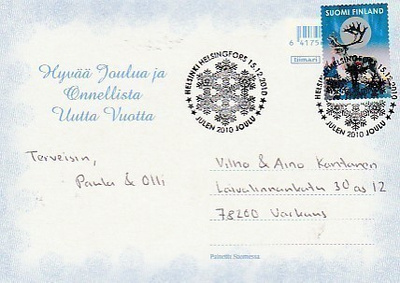 SUOMI FINLAND
HELSINKI HELSINGFORS 15.12.2010
JULEN 2010 JOULU
HELSINGFORS 15.12.2010
JULEN 2010 JOULU
tiimari
Hyvää Joulua ja
Onnellista
Uutta Vuotta
Terveisin,
Paula & Olli
Vilho & Aino Kantanen
Laivalinnankatu 30 as 12
78200 Varkaus
Painettu Suomessa